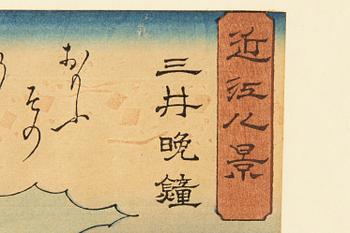 近江八景
三井晩鐘
おもふ
その